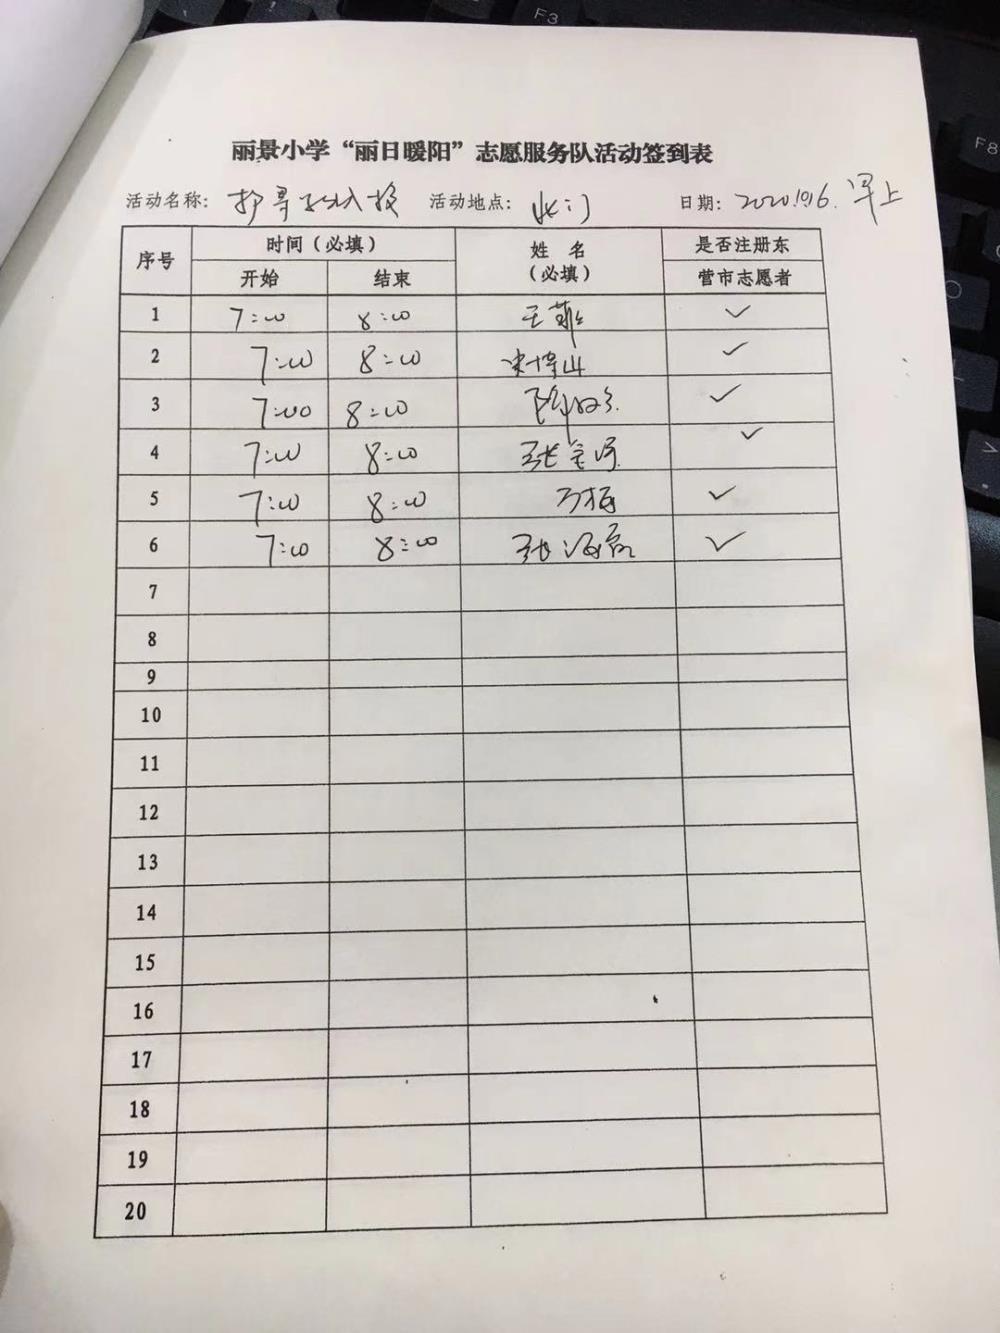 丽景小学“丽日暖阳”志愿服务队活动签到表
活动名称： 护导 入校 活动地点： 北门 日期： 2020.10.16. 早上
序号 时间（必填） 姓名（必填） 是否注册东营市志愿者
开始 结束
1 7:00 8:00 王菲 ✓
2 7:00 8:00 ✓
3 7:00 8:00 ✓
4 7:00 8:00 ✓
5 7:00 8:00 ✓
6 7:00 8:00 张海 ✓
7
8
9
10
11
12
13
14
15
16
17
18
19
20
F3
F8